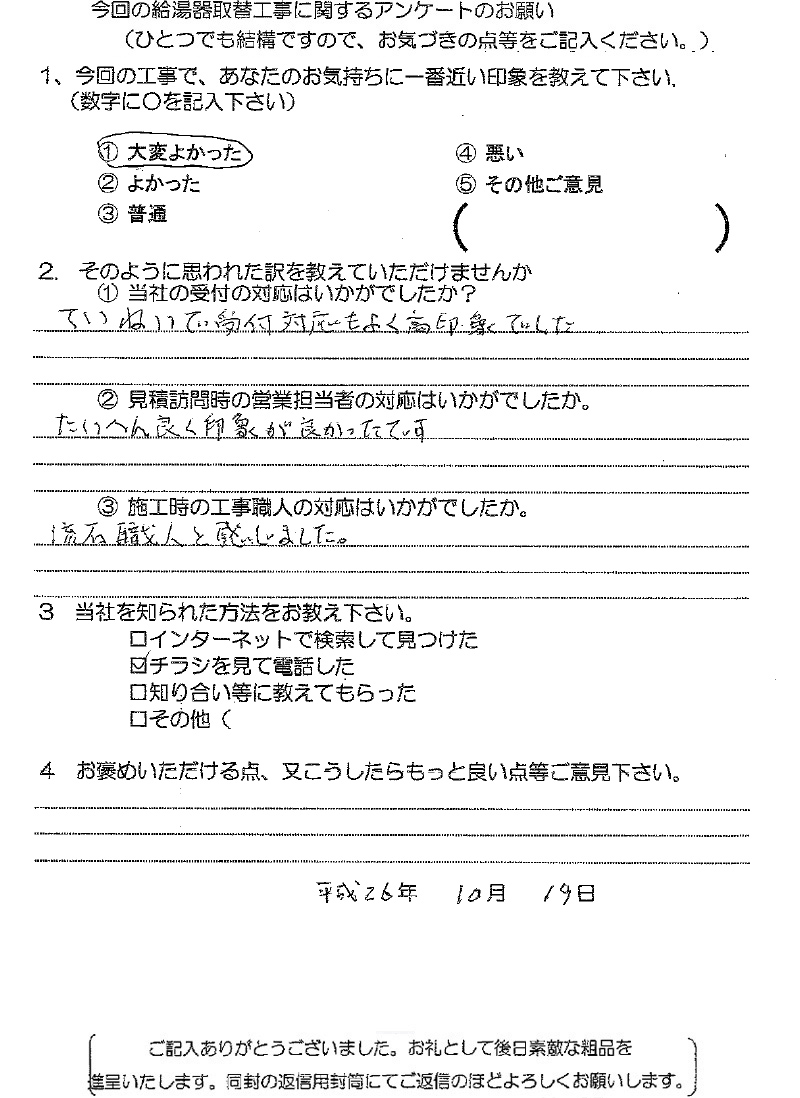 今回の給湯器取替工事に関するアンケートのお願い
（ひとつでも結構ですので、お気づきの点等をご記入ください。）
1、今回の工事で、あなたのお気持ちに一番近い印象を教えて下さい.
（数字に〇を記入下さい）
① 大変よかった
② よかった
③ 普通
④ 悪い
⑤ その他ご意見
（ ）
2. そのように思われた訳を教えていただけませんか
① 当社の受付の対応はいかがでしたか？
ていねいで受付対応もよく高印象でした
② 見積訪問時の営業担当者の対応はいかがでしたか。
たいへん良く印象が良かったです
③ 施工時の工事職人の対応はいかがでしたか。
流石職人と感じました。
3 当社を知られた方法をお教え下さい。
□インターネットで検索して見つけた
☑チラシを見て電話した
□知り合い等に教えてもらった
□その他（
4 お褒めいただける点、又こうしたらもっと良い点等ご意見下さい。
平成26年 10月 19日
ご記入ありがとうございました。お礼として後日素敵な粗品を
進呈いたします。同封の返信用封筒にてご返信のほどよろしくお願いします。